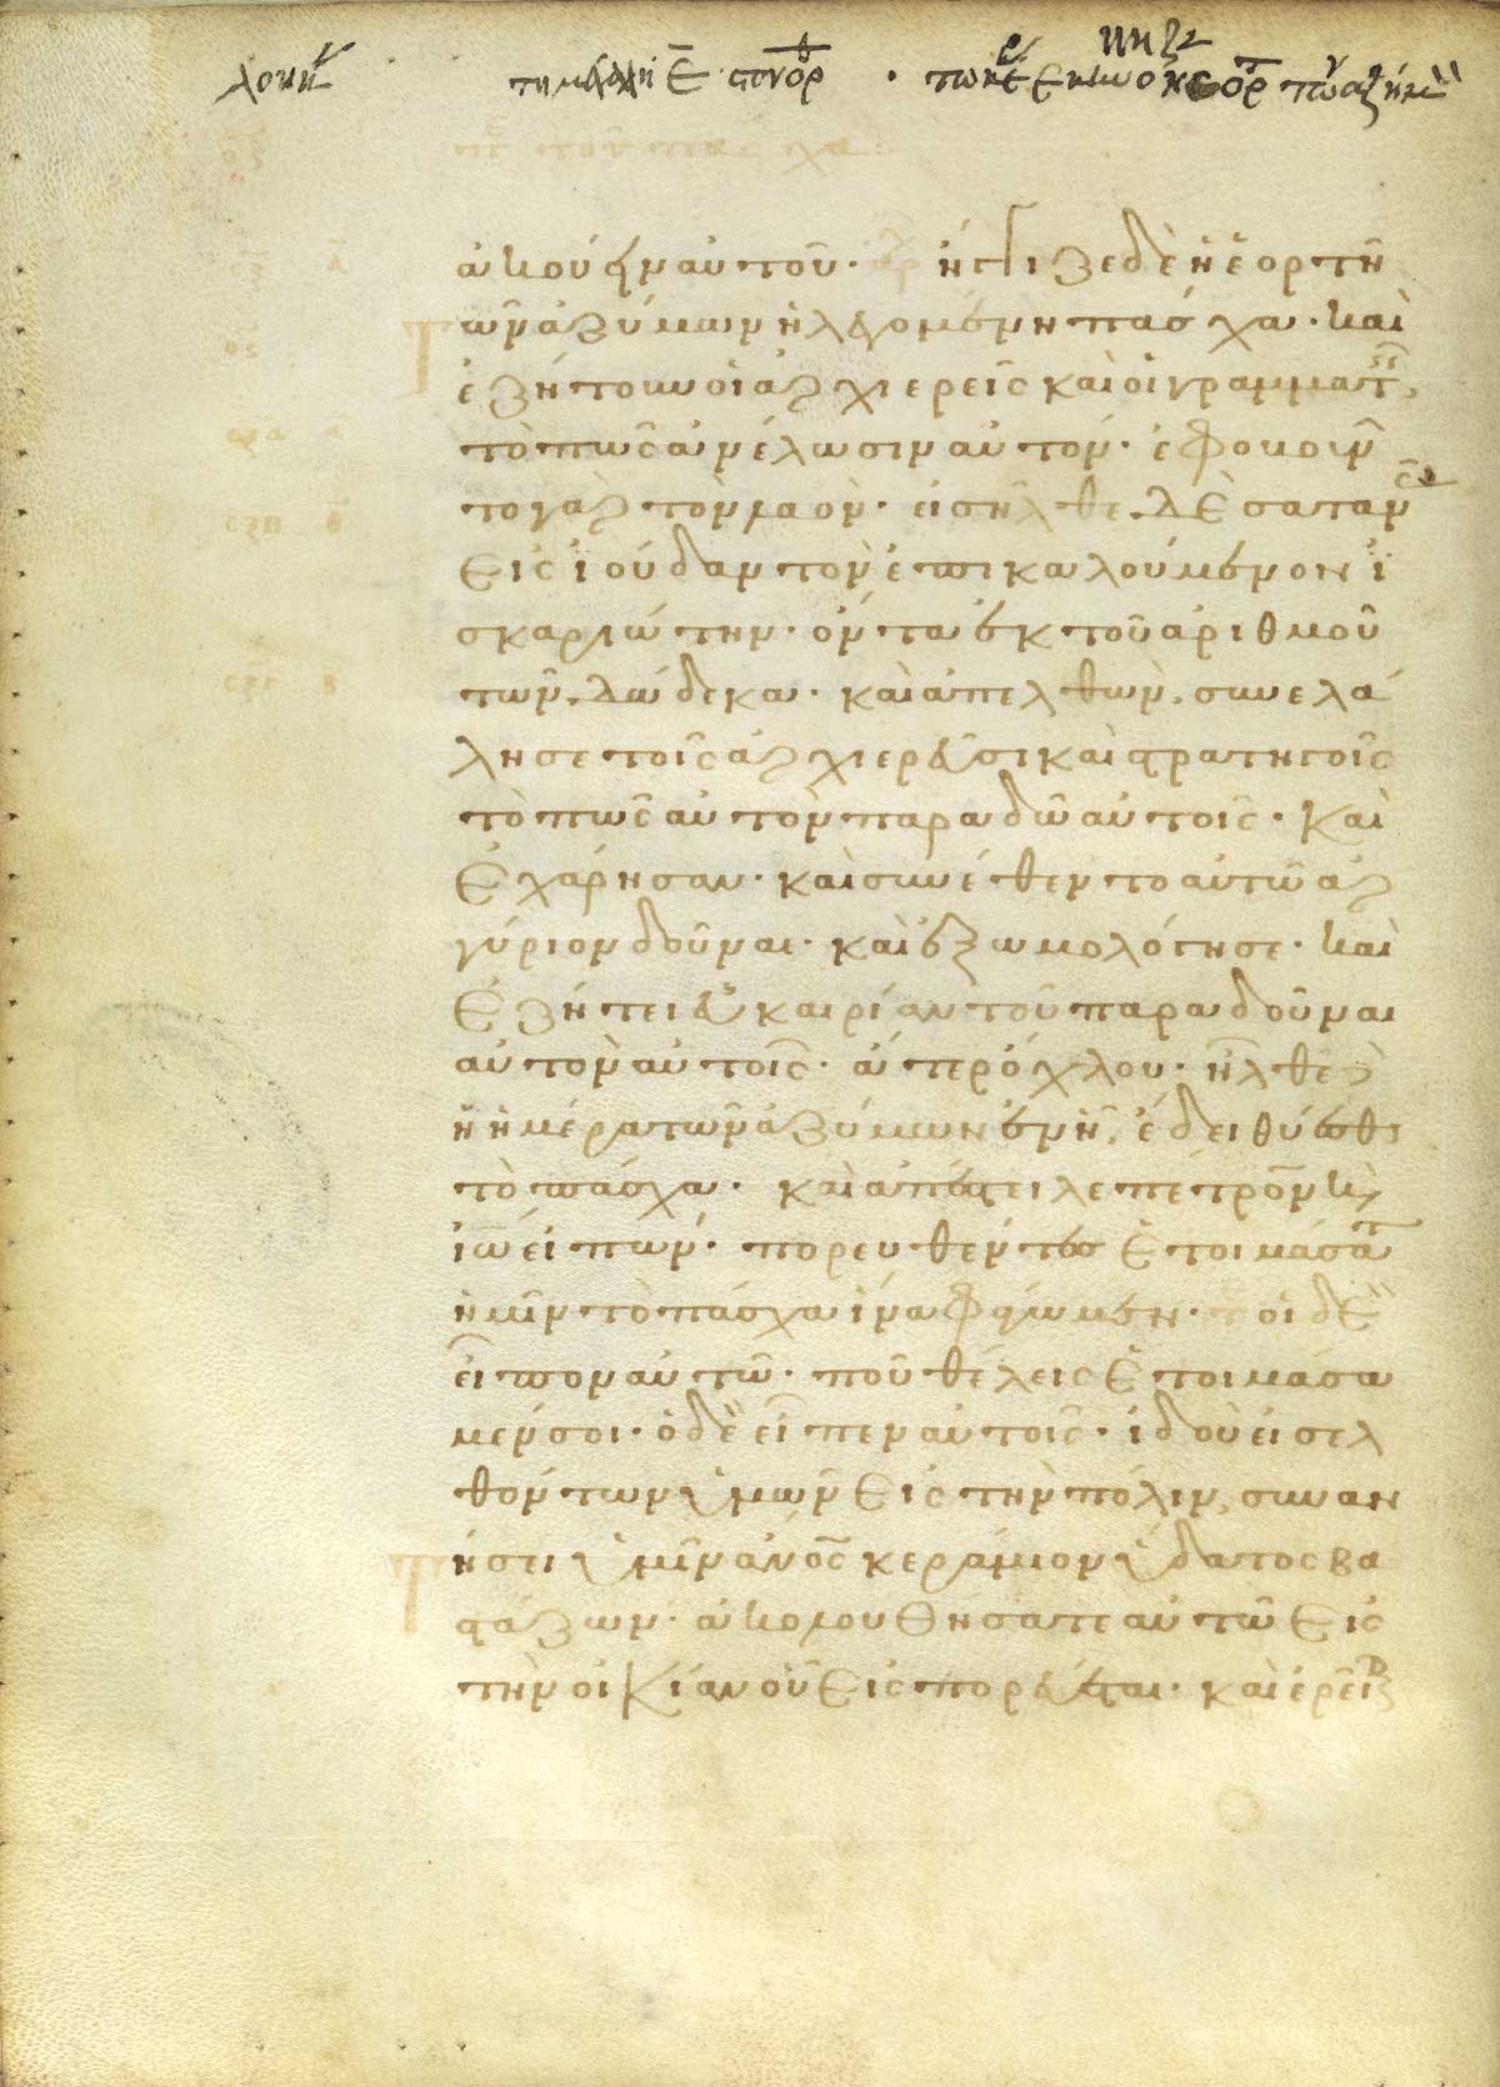 ἀκούειν αὐτοῦ. ἤγγιζε δὲ ἡ ἑορτὴ
τῶν ἀζύμων ἡ λεγομένη πάσχα. καὶ
ἐζήτουν οἱ ἀρχιερεῖς καὶ οἱ γραμματ
τὸ πῶς ἀνέλωσιν αὐτόν. ἐφοβοῦν
το γὰρ τὸν λαόν. εἰσῆλθε δὲ σαταν
εἰς ἰούδαν τὸν ἐπικαλούμενον ἰ
σκαριώτην. ὄντα ἐκ τοῦ ἀριθμοῦ
τῶν δώδεκα. καὶ ἀπελθὼν, συνελά
λησε τοῖς ἀρχιερεῦσι καὶ στρατηγοῖς
τὸ πῶς αὐτὸν παραδῶ αὐτοῖς. καὶ
ἐχάρησαν. καὶ συνέθεντο αὐτῶ ἀρ
γύριον δοῦναι. καὶ ἐξωμολόγησε. καὶ
ἐζήτει εὐκαιρίαν τοῦ παραδοῦναι
αὐτὸν αὐτοῖς. ἄτερ ὄχλου. ἦλθε δὲ
ἡ ἡμέρα τῶν ἀζύμων ἐν ἧ, ἔδει θύεσθαι
τὸ πάσχα. καὶ ἀπέστειλε πέτρον καὶ
ἰω εἰπών. πορευθέντες ἑτοιμάσατ
ἡμῖν τὸ πάσχα ἵνα φάγωμεν. οἱ δὲ
εἶπον αὐτῶ. ποῦ θέλεις ἑτοιμάσω
μέν σοι. ὁ δὲ εἶπεν αὐτοῖς. ἰδοὺ εἰσελ
θόντων ὑμῶν εἰς τὴν πόλιν, συναν
τήσει ὑμῖν ἀνος κεράμιον ὕδατος βα
στάζων. ἀκολουθήσατε αὐτῶ εἰς
τὴν οἰκίαν οὗ εἰσπορεύεται. καὶ ἐρεῖτ